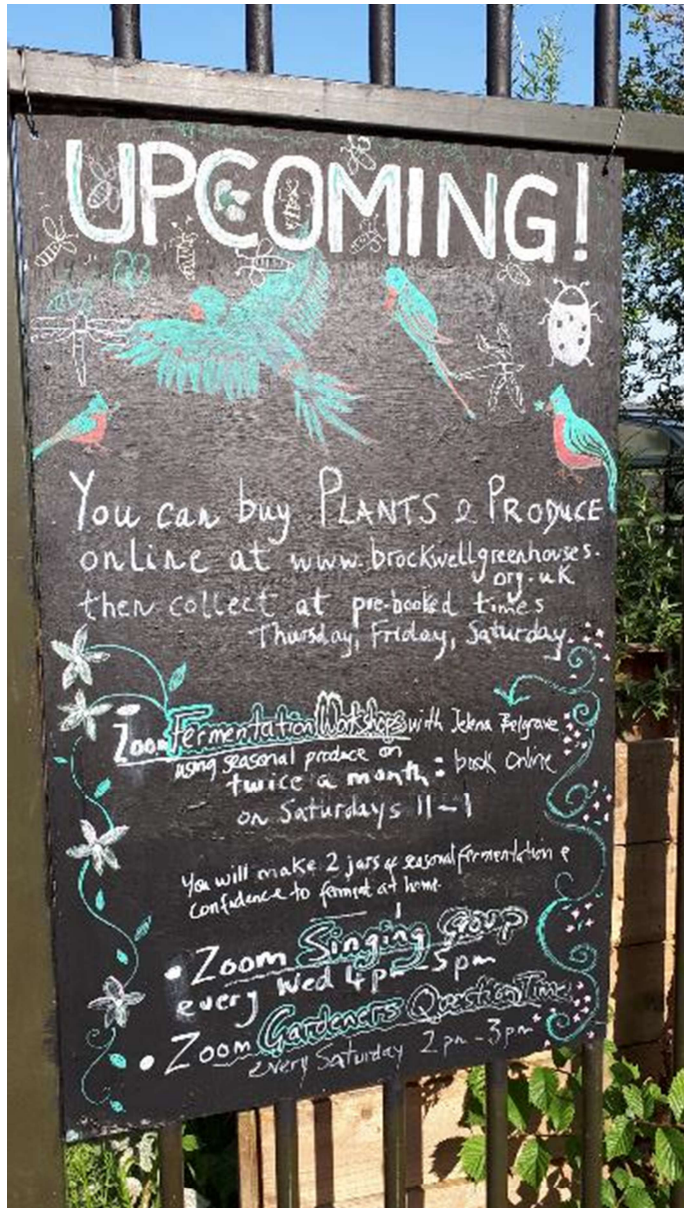 UPCOMING!
You can buy PLANTS & PRODUCE
online at www.brockwellgreenhouses.
org.uk
then collect at pre-booked times
Thursday, Friday, Saturday
Zoom Fermentation Workshops with Jelena Belgrave
using seasonal produce on
twice a month: book online
on Saturdays 11-1
You will make 2 jars of seasonal fermentation &
confidence to ferment at home
• Zoom Singing Group
every Wed 4pm-5pm
• Zoom Gardeners Question Time
every Saturday 2pm-3pm